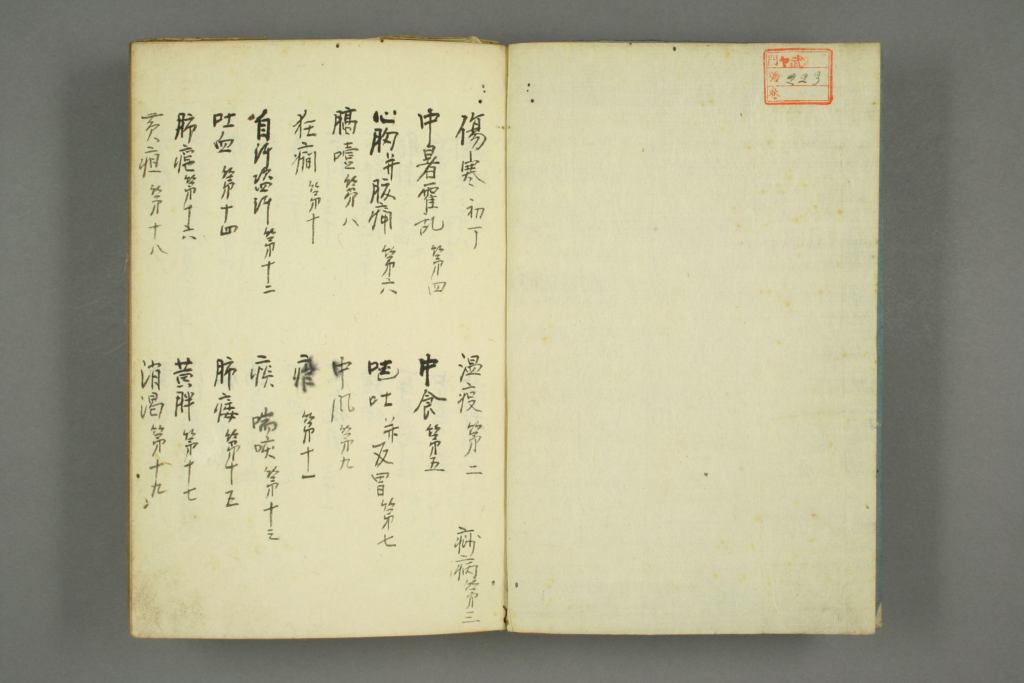 門
号 223
傷寒 初丁
温疫 第二
痧病 第三
中暑霍乱 第四
中食 第五
心胸并腹痛 第六
吐并反胃 第七
膈噎 第八
中風 第九
狂癇 第十
瘧 第十一
自汗盗汗 第十二
痰 喘咳 第十三
吐血 第十四
肺痿 第十五
肺 第十六
黄胖 第十七
黄疸 第十八
消渇 第十九